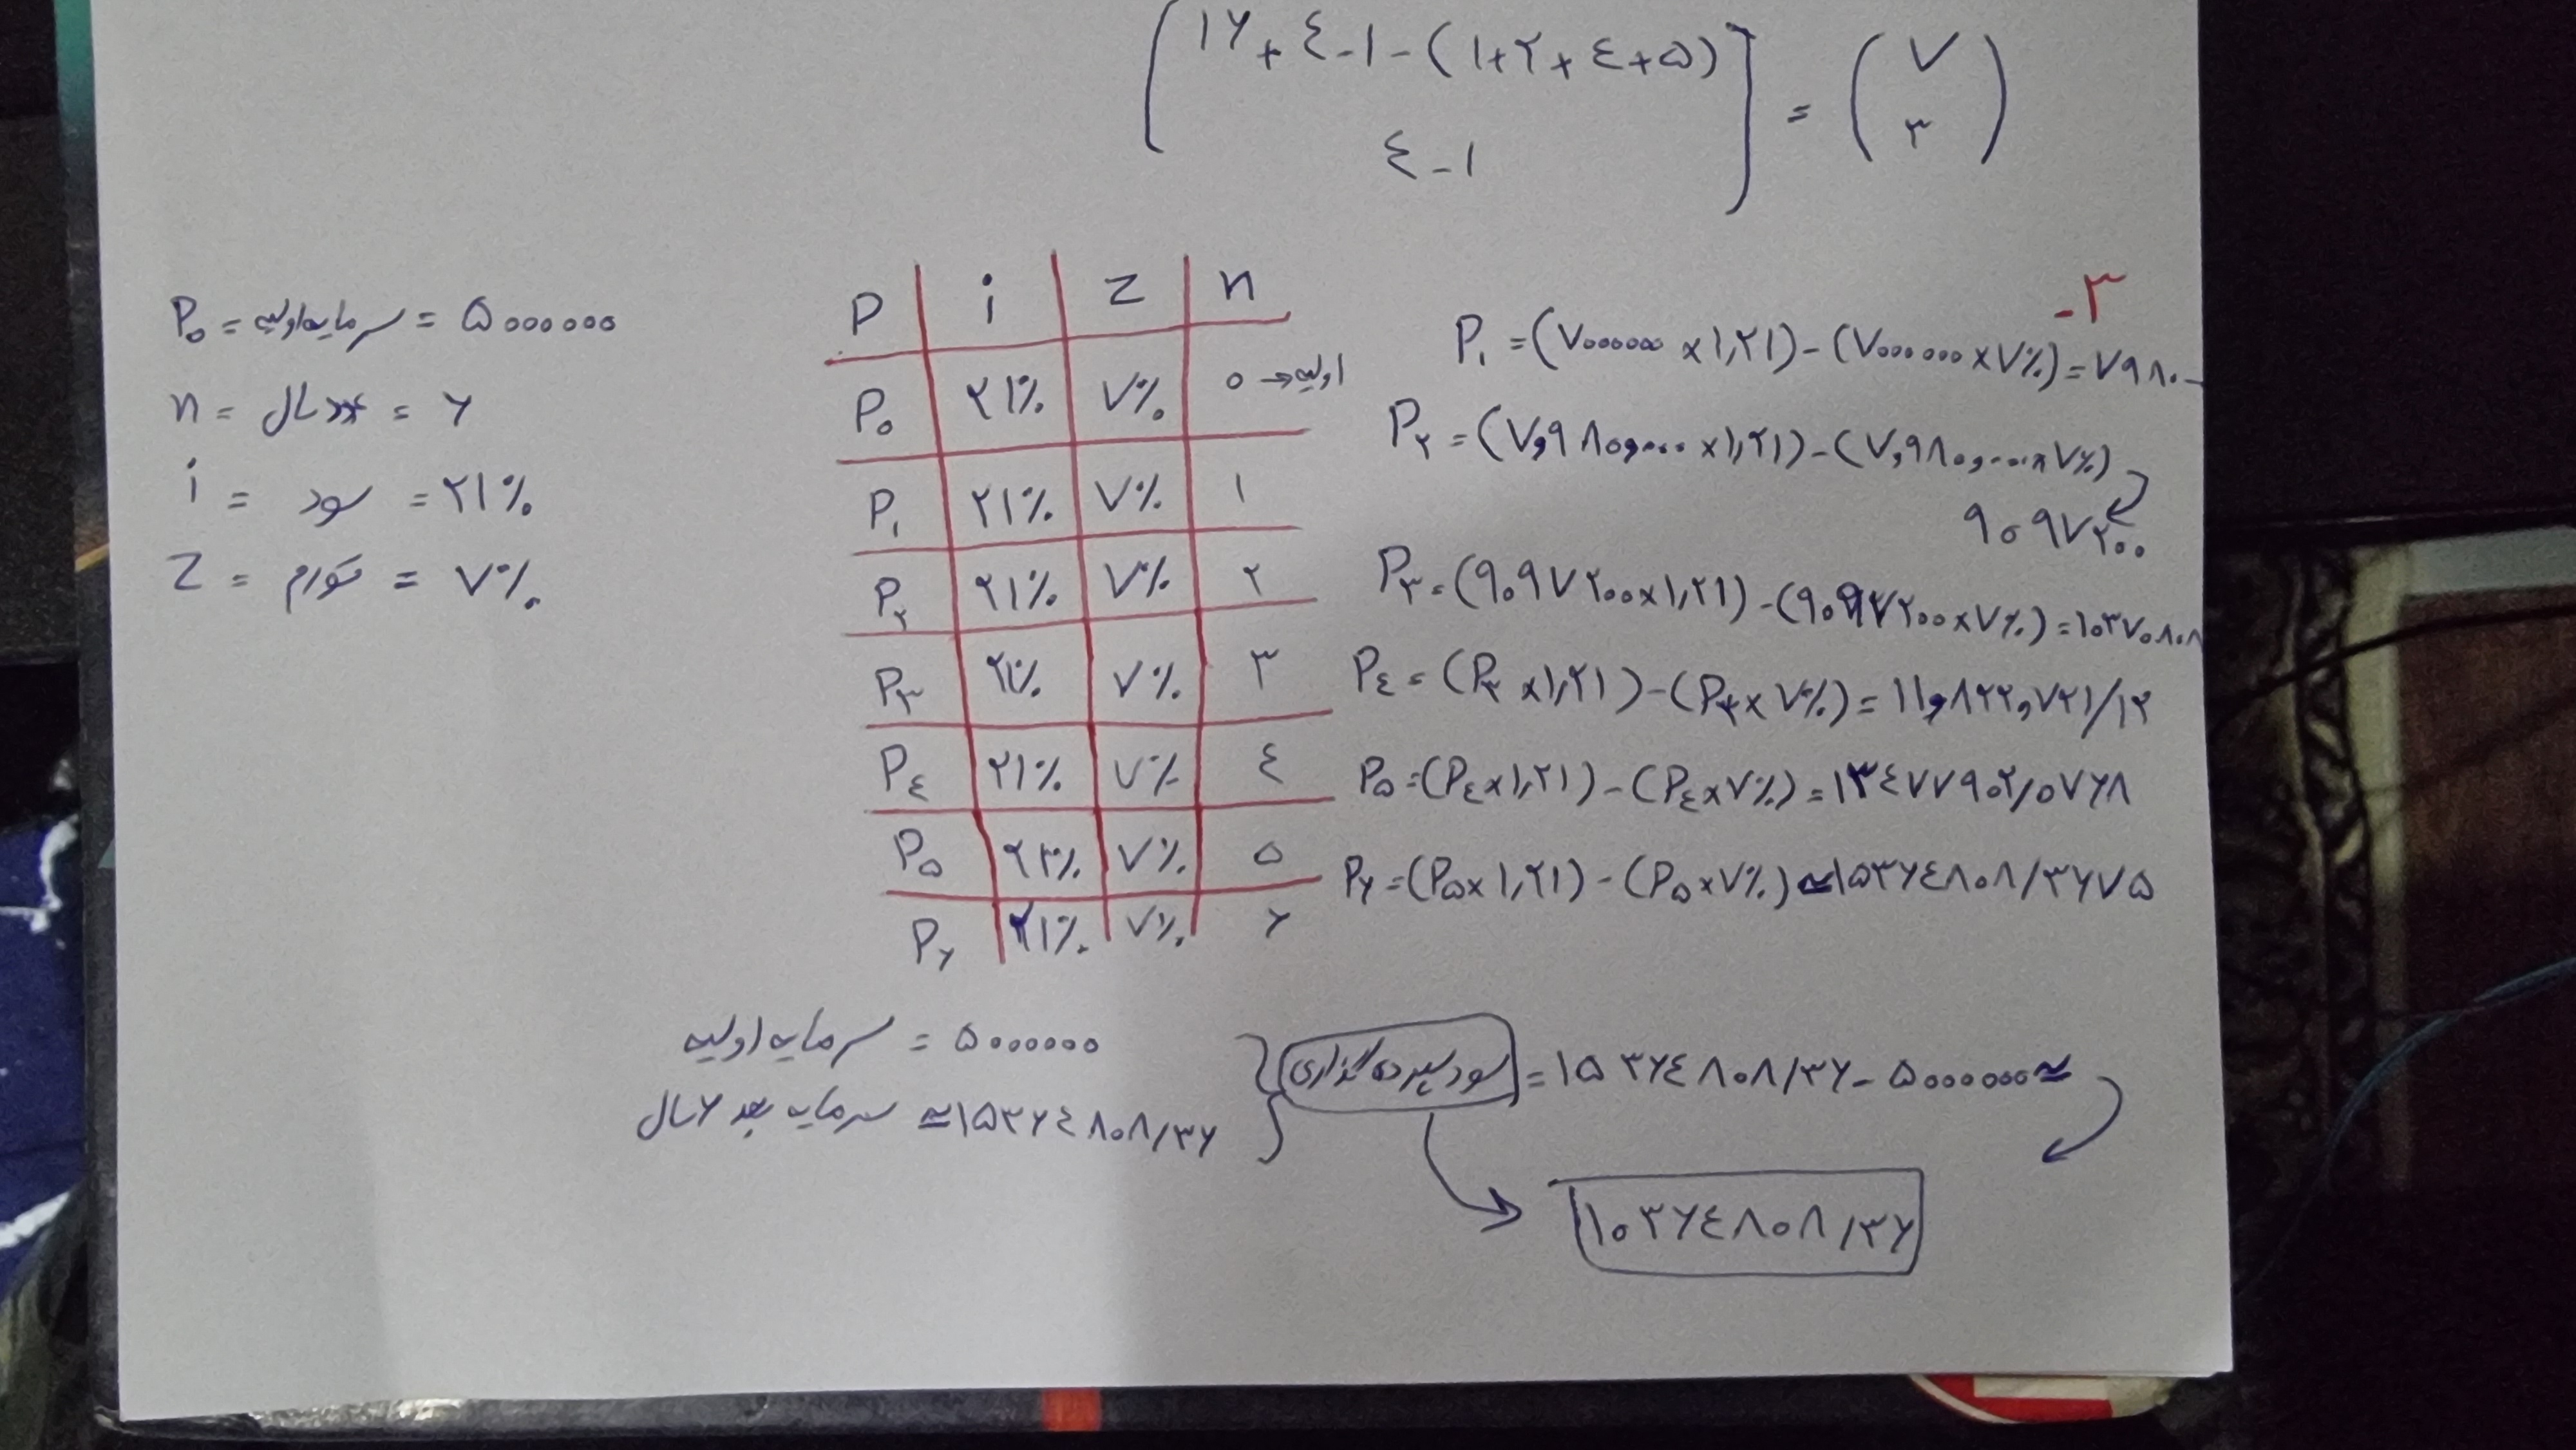 [۱۶+۴-۱-(۱+۲+۴+۵)] = (۷)
۴-۱ ۳
۳-
P₀ = سرمایه اولیه = ۵۰۰۰۰۰۰
n = عدد سال = ۶
i = سود = ۲۱%
z = تورم = ۷%
P i z n
P₀ ۲۱% ۷% ۰ → اولیه
P₁ ۲۱% ۷% ۱
P₂ ۲۱% ۷% ۲
P₃ ۲۱% ۷% ۳
P₄ ۲۱% ۷% ۴
P₅ ۲۱% ۷% ۵
P₆ ۲۱% ۷% ۶
P₁ = (۷۰۰۰۰۰۰ × ۱,۲۱) - (۷۰۰۰۰۰۰ × ۷%) = ۷۹۸۰
P₂ = (۷,۹۸۰,۰۰۰ × ۱,۲۱) - (۷,۹۸۰,۰۰۰ × ۷%)
۹۰۹۷۲۰۰
P₃ = (۹۰۹۷۲۰۰ × ۱,۲۱) - (۹۰۹۷۲۰۰ × ۷%) = ۱۰۳۷۰۸۰۸
P₄ = (P₃ × ۱,۲۱) - (P₃ × ۷%) = ۱۱,۸۲۲,۷۲۱/۱۲
P₅ = (P₄ × ۱,۲۱) - (P₄ × ۷%) = ۱۳۴۷۷۹۰۲/۰۷۶۸
P₆ = (P₅ × ۱,۲۱) - (P₅ × ۷%) ≃ ۱۵۳۶۴۸۰۸/۳۶۷۵
سرمایه اولیه = ۵۰۰۰۰۰۰
سرمایه بعد ۶ سال ≃ ۱۵۳۶۴۸۰۸/۳۶
سود سپرده گذاری = ۱۵۳۶۴۸۰۸/۳۶ - ۵۰۰۰۰۰۰ ≃
۱۰۳۶۴۸۰۸/۳۶